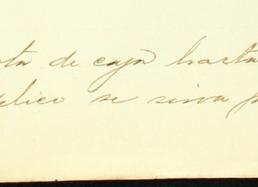 ota de caja hasta
plico se sirva